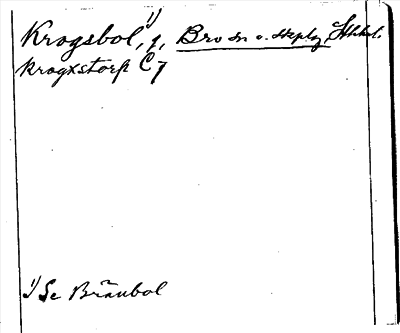 Krogsbol,¹⁾ g, Bro sn o. skeplg, Sthlm.
Krogxstorp C 7
¹⁾ Se Brånbol